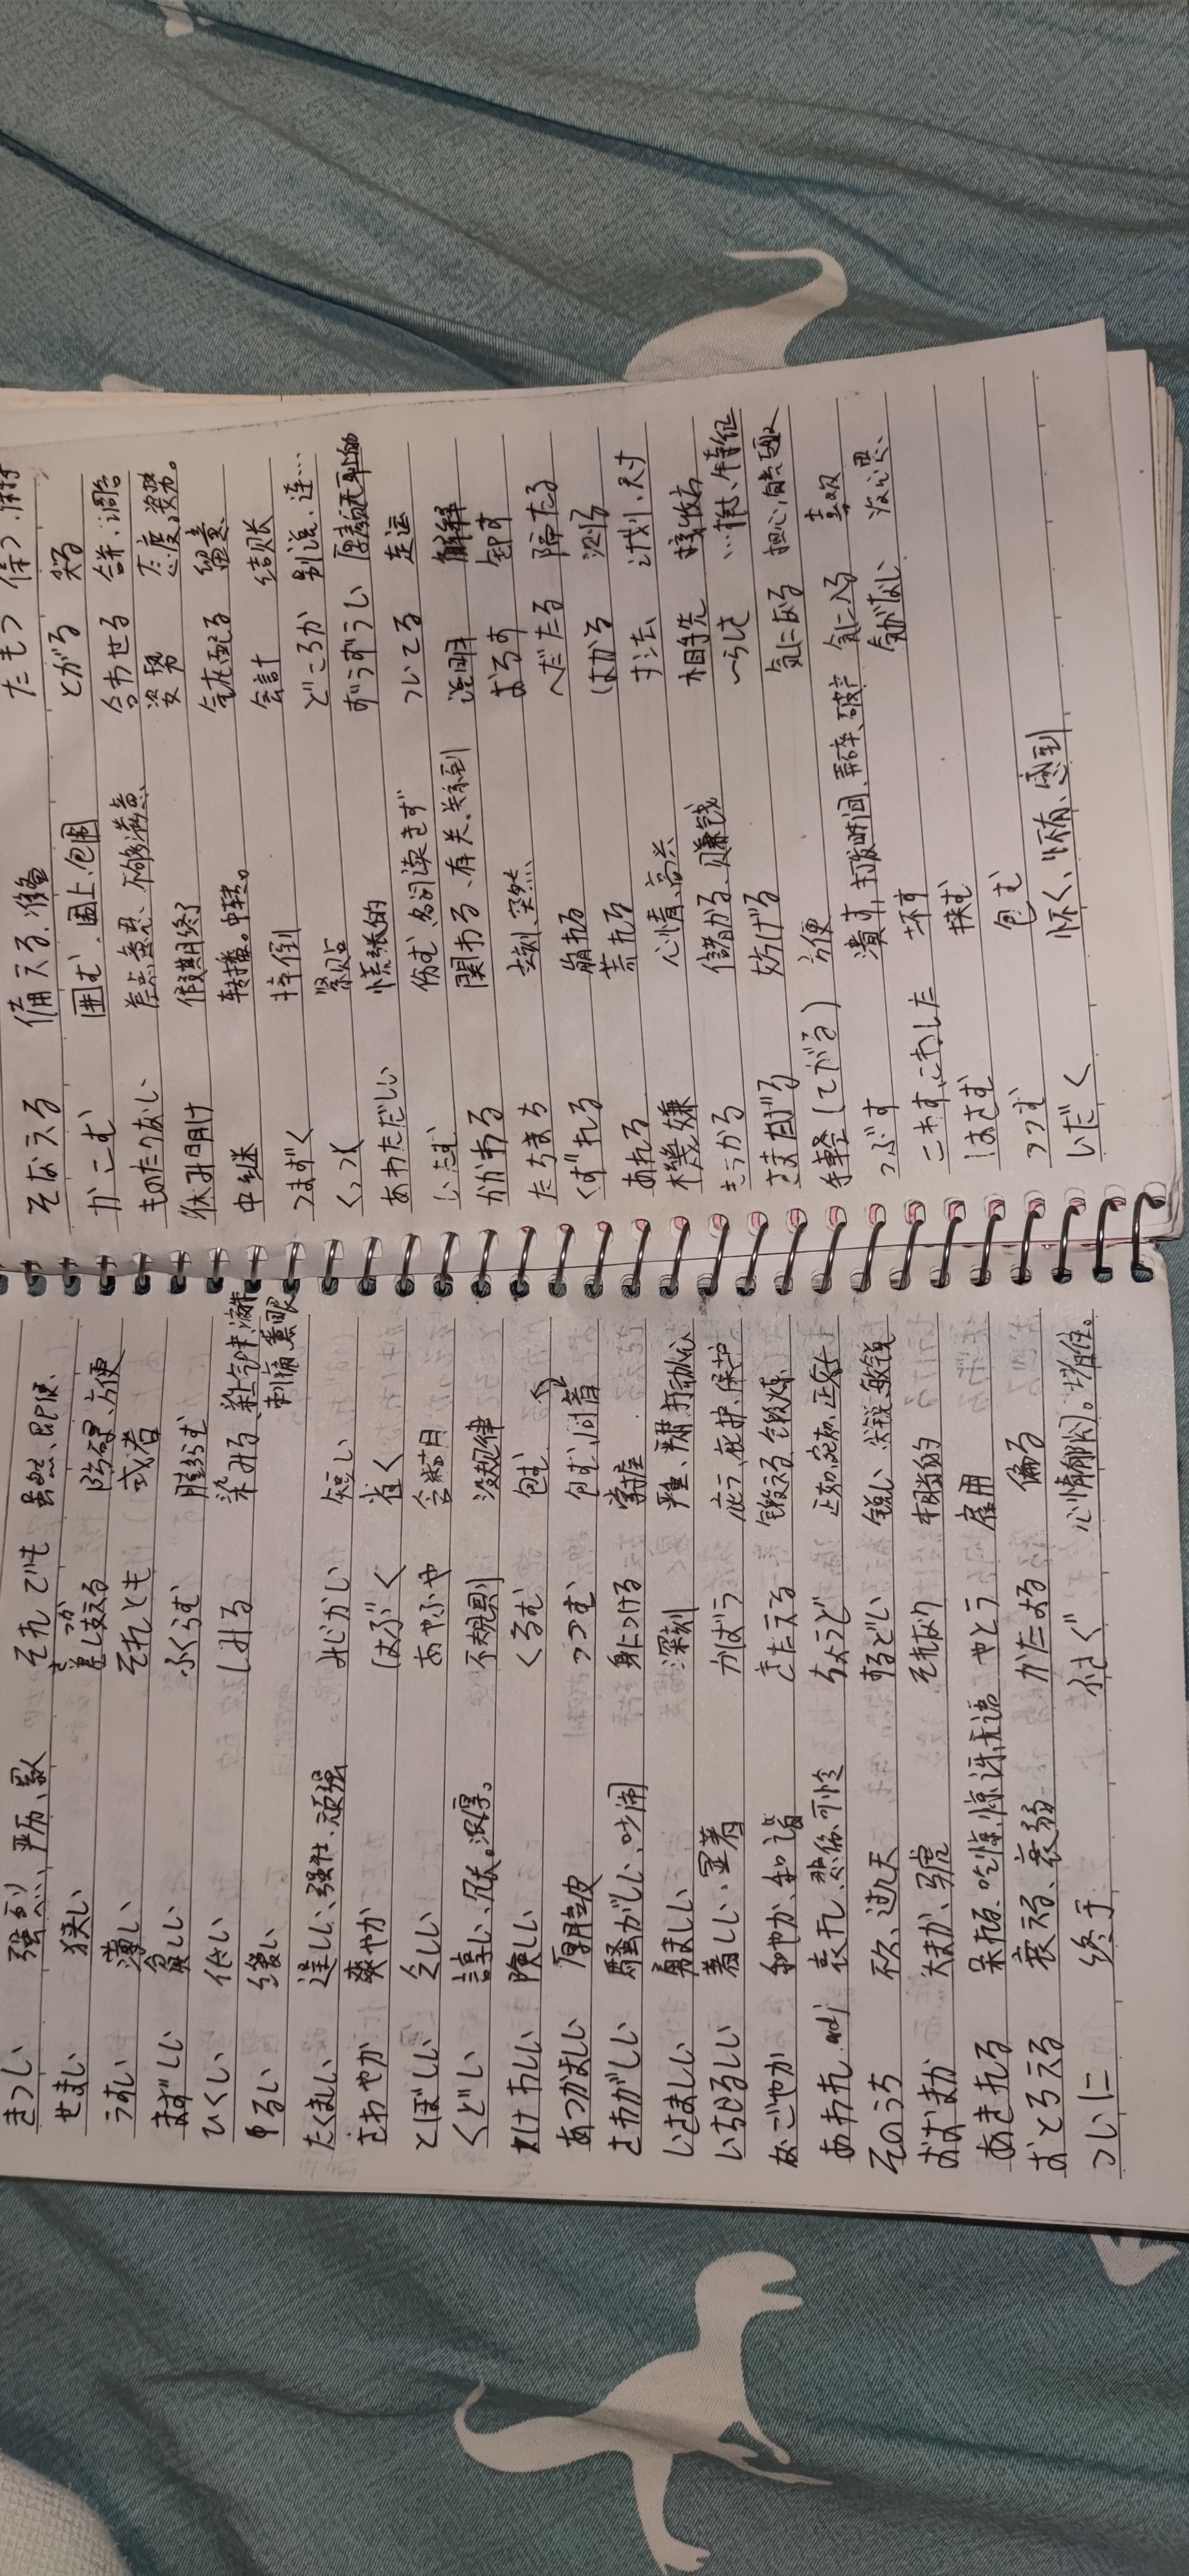 きつい 強烈、严厉、累 それでも 虽然、即使、
せまい 狭い 差し支える 防碍、方便
つか
うすい 薄い それとも 或者
まずしい 貧しい ふくらむ 膨らむ
ひくい 低い しみる 染みる、染上气味、液体
刺痛、熏眼
ゆるい 缓い
たくましい 逞しい、强壮、顽强 みじかい 短い
さわやか 爽やか はぶく 省く
とぼしい 乏しい あやふや 含糊
くどい 諄い、冗长。浓厚。 不規則 没规律
けわしい 険しい くるむ 包む
あつかましい 厚脸皮 つつむ 包む
さわがしい 騒がしい、吵闹 身につける 掌握
いさましい 勇ましい 深刻 严重、打动心
いちじるしい 著しい、显著 かばう 庇う、庇护、保护
なごやか 和やか、和谐 きたえる 鍛える、锻炼
あわれ adj 哀れ、悲伤、可怜 ちょうど 正如、宛如、正好
そのうち 不久、过几天 するどい 鋭い、尖锐、敏锐
おおまか 大まか それなり 相当的
あきれる 呆れる、吃惊、惊讶、无语 やとう 雇用
おとろえる 衰える、衰弱 かたよる 偏る
ついに 终于 ふさぐ 心情郁闷。堵住。
たもつ 保つ、保持
そなえる 備える、准备 とがる 尖る
かこむ 囲む、围上、包围 合わせる 合并、调合
ものたりない 差点意思、不够满意、 姿勢 态度、姿势。
休み明け 假期终了 気を配る 留意
中継 转播。中转。 会計 结账
つまずく 摔倒 どころか 别说、连…
くっつく 紧贴 ずうずうしい 厚颜无耻的
あわただしい 慌张的 ついてる 走运
いたむ 伤む、名词读きず 说明 解释
かかわる 関わる、有关、关系到 おろす 卸す
たちまち 立刻、突然、 へだたる 隔たる
くずれる 崩れる はかる 测る
あれる 荒れる 寸法 计划、尺寸
機嫌 心情、高兴 相手先 接收方
もうかる 儲かる、赚钱 〜らしさ …样、特征
さまたげる 妨げる 気になる 担心、有兴趣
手軽(てがる) 方便 気に入る 喜欢
つぶす 潰す、打发时间、弄碎、破产 気がない 没心思、
こわす、こわした 坏す
はさむ 挟む
つつむ 包む
いだく 怀く、怀有、感到